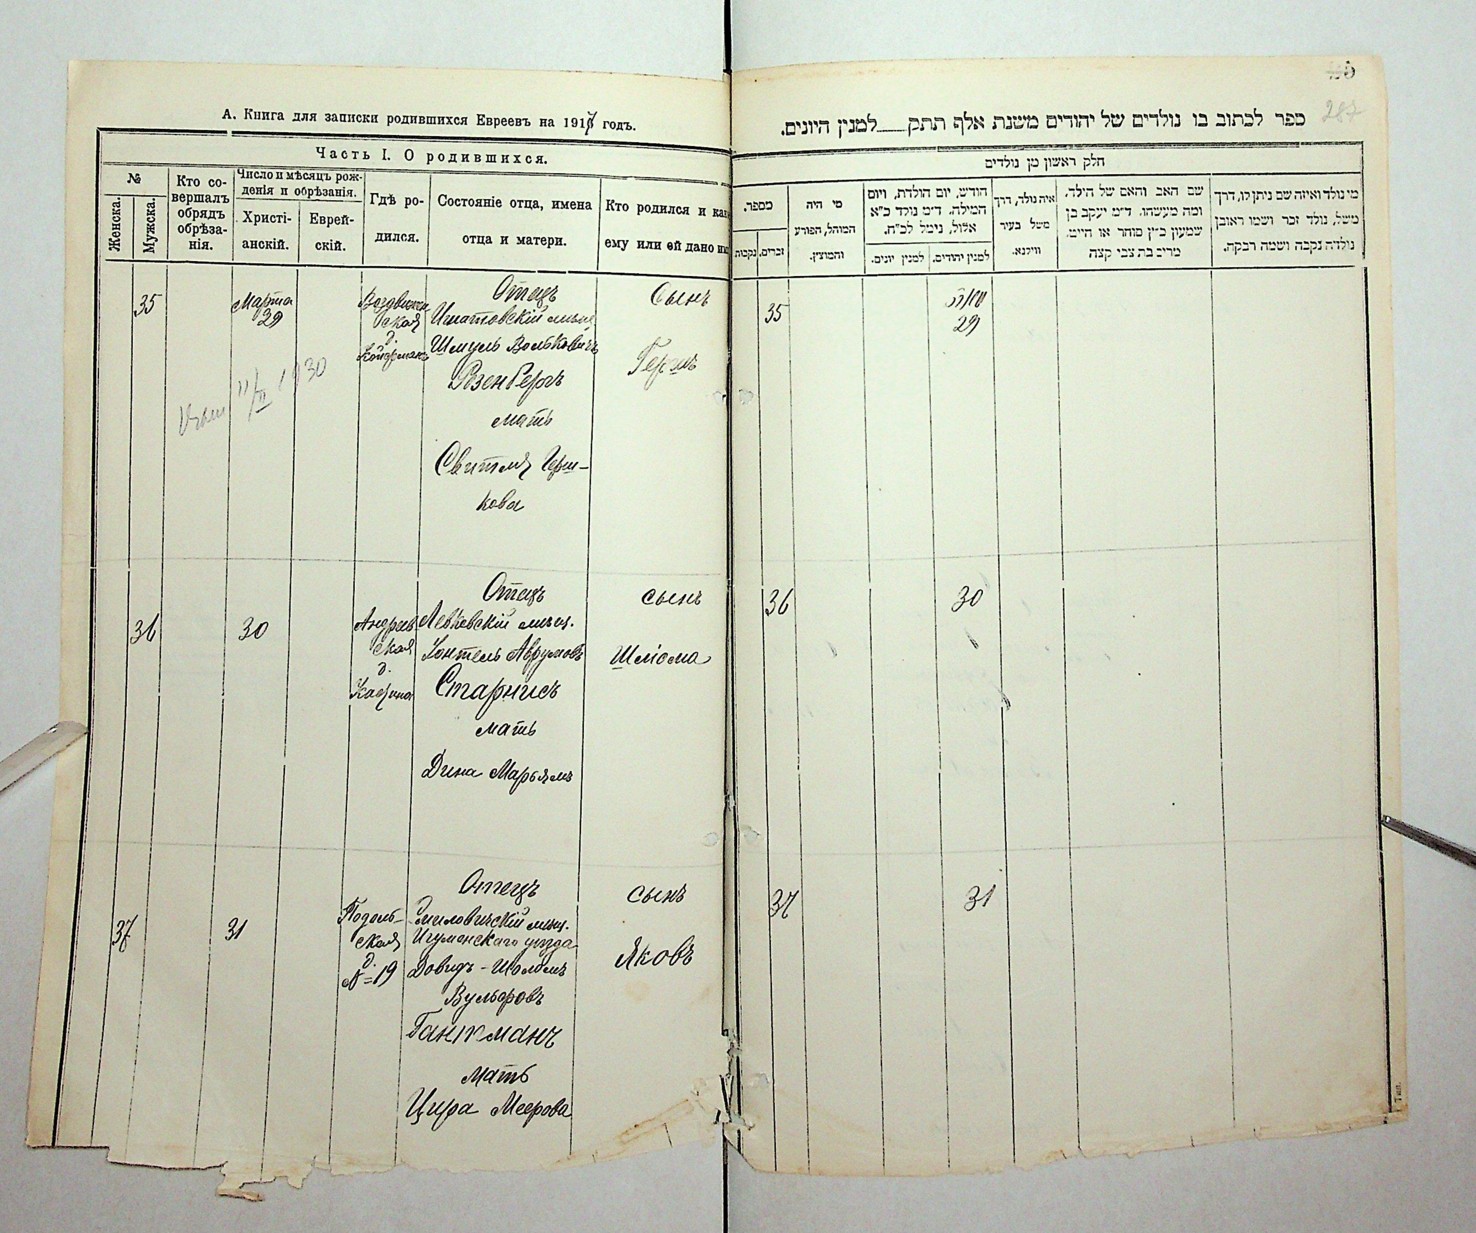 А. Книга для записки родившихся Евреевъ на 1917 годъ.
Часть I. О родившихся.
№
Женска.
Мужска.
Кто со-
вершалъ
обрядъ
обрѣза-
нія.
Число и мѣсяцъ рож-
денія и обрѣзанія.
Христі-
анскій.
Еврей-
скій.
Гдѣ ро-
дился.
Состояніе отца, имена
отца и матери.
Кто родился и как
ему или ей дано им
35
Марта
29
Воздвижен
ская
д.
Отецъ
Игнатовскій мѣщ.
Шмуль Вольковичъ
Розенбергъ
мать
Свитля Герш-
кова
Сынъ
Гершъ
11/II 1930
36
30
Андреев
ская
д.
Отецъ
Левковскій мѣщ.
Контель Аврумовъ
Старнись
мать
Дина Марьямъ
сынъ
Шліома
37
31
Подоль-
ская
д.
№ 19
Отецъ
Смиловичскій мѣщ.
Игуменскаго уѣзда
Довидъ-Шоломъ
Вульфовъ
Гантманъ
мать
Цира Меерова
сынъ
Яковъ
287
ספר לכתוב בו נולדים של יהודים משנת אלף תתק___למנין היונים.
חלק ראשון מן נולדים
מספר.
זכרים.
נקבות
מי היה
המוהל, הפורע
והמוצץ.
חודש, יום הולדת, ויום
המילה. ד״מ נולד כ״א
אלול, נימל לכ״ח.
למנין יהודים.
למנין יונים.
איה נולד, דרך
משל בעיר
ווילנא.
שם האב והאם של הילד.
ומה מעשהו. ד״מ יעקב בן
שמעון כ״ץ סוחר או חייט.
מרים בת צבי קצה
מי נולד ואיזה שם ניתן לו, דרך
משל, נולד זכר ושמו ראובן
נולדה נקבה ושמה רבקה.
35
29
36
30
37
31
Тип.